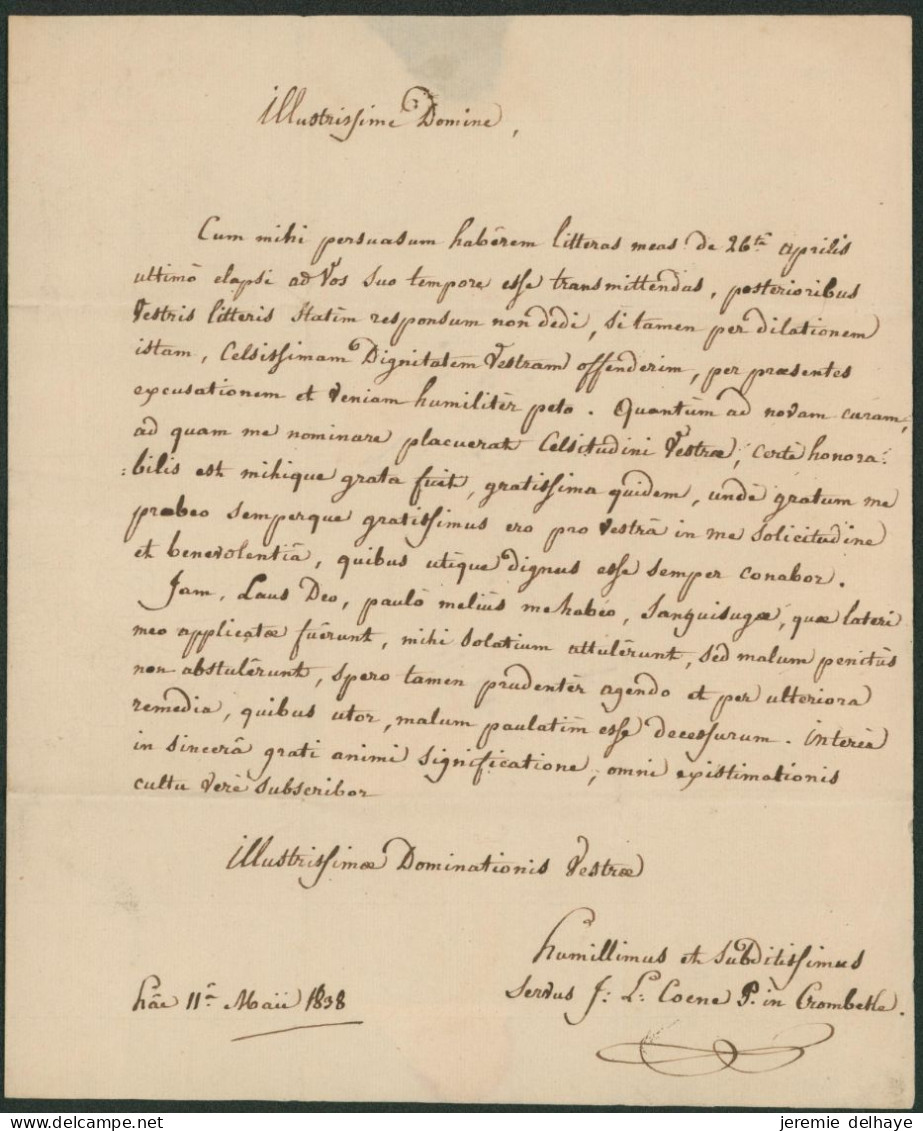 Illustrissime Domine,
Cum mihi persuasum habêrem litteras meas de 26.ta aprilis
ultimô elapsi ad Vos suo tempore esse transmittendas, posterioribus
Vestris litteris statim responsum non dedi, si tamen per dilationem
istam, Celsissimam Dignitatem Vestram offenderim, per præsentes
excusationem et veniam humilitèr peto. Quantùm ad novam curam,
ad quam me nominare placuerat Celsitudini Vestræ, certè honora:
:bilis est mihique grata fuit, gratissima quidem, undè gratum me
præbeo semperque gratissimus ero pro Vestrâ in me solicitudine
et benevolentiâ, quibus utìque dignus esse semper conabor.
Jam, Laus Deo, paulò meliùs me habeo, Sanguisugæ, quæ lateri
meo applicatæ fuêrunt, mihi solatium attulêrunt, sed malum penitùs
non abstulêrunt, spero tamen prudentèr agendo et per ulteriora
remedia, quibus utor, malum paulatìm esse decessurum. interèa
in sincerâ grati animi significatione, omni existimationis
cultu verè subscribor
illustrissimæ Dominationis Vestræ
humillimus et subditissimus
servus J: L: Coene P. in Crombeke.
hâc 11.a Maii 1838
jeremie delhaye